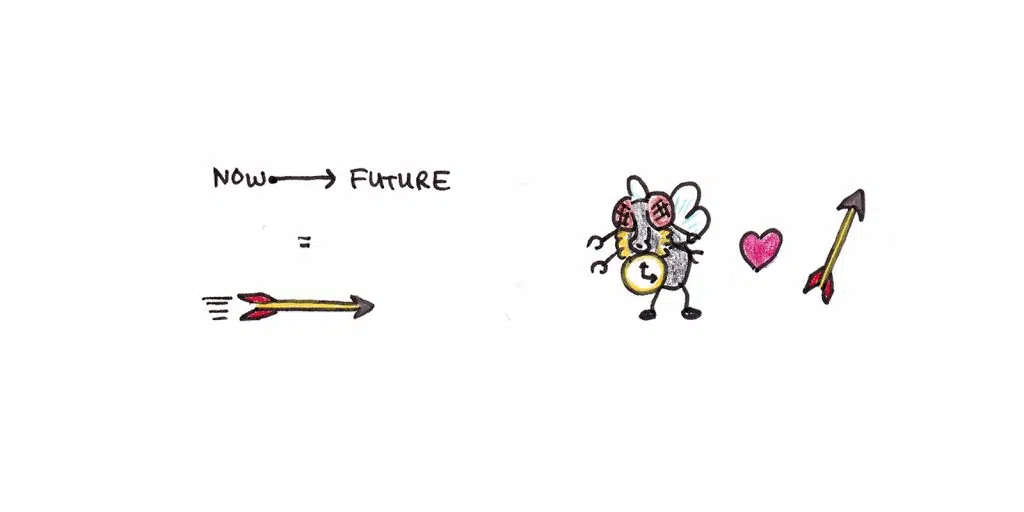 NOW → FUTURE
=